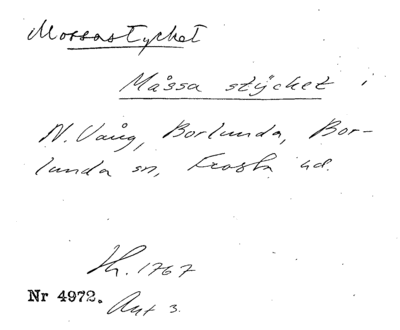 Mossastycket
Måssa stÿcket i
N. Vång, Borlunda, Bor-
lunda sn, Frosta hd.
Sk. 1767
Nr 4972. Akt 3.